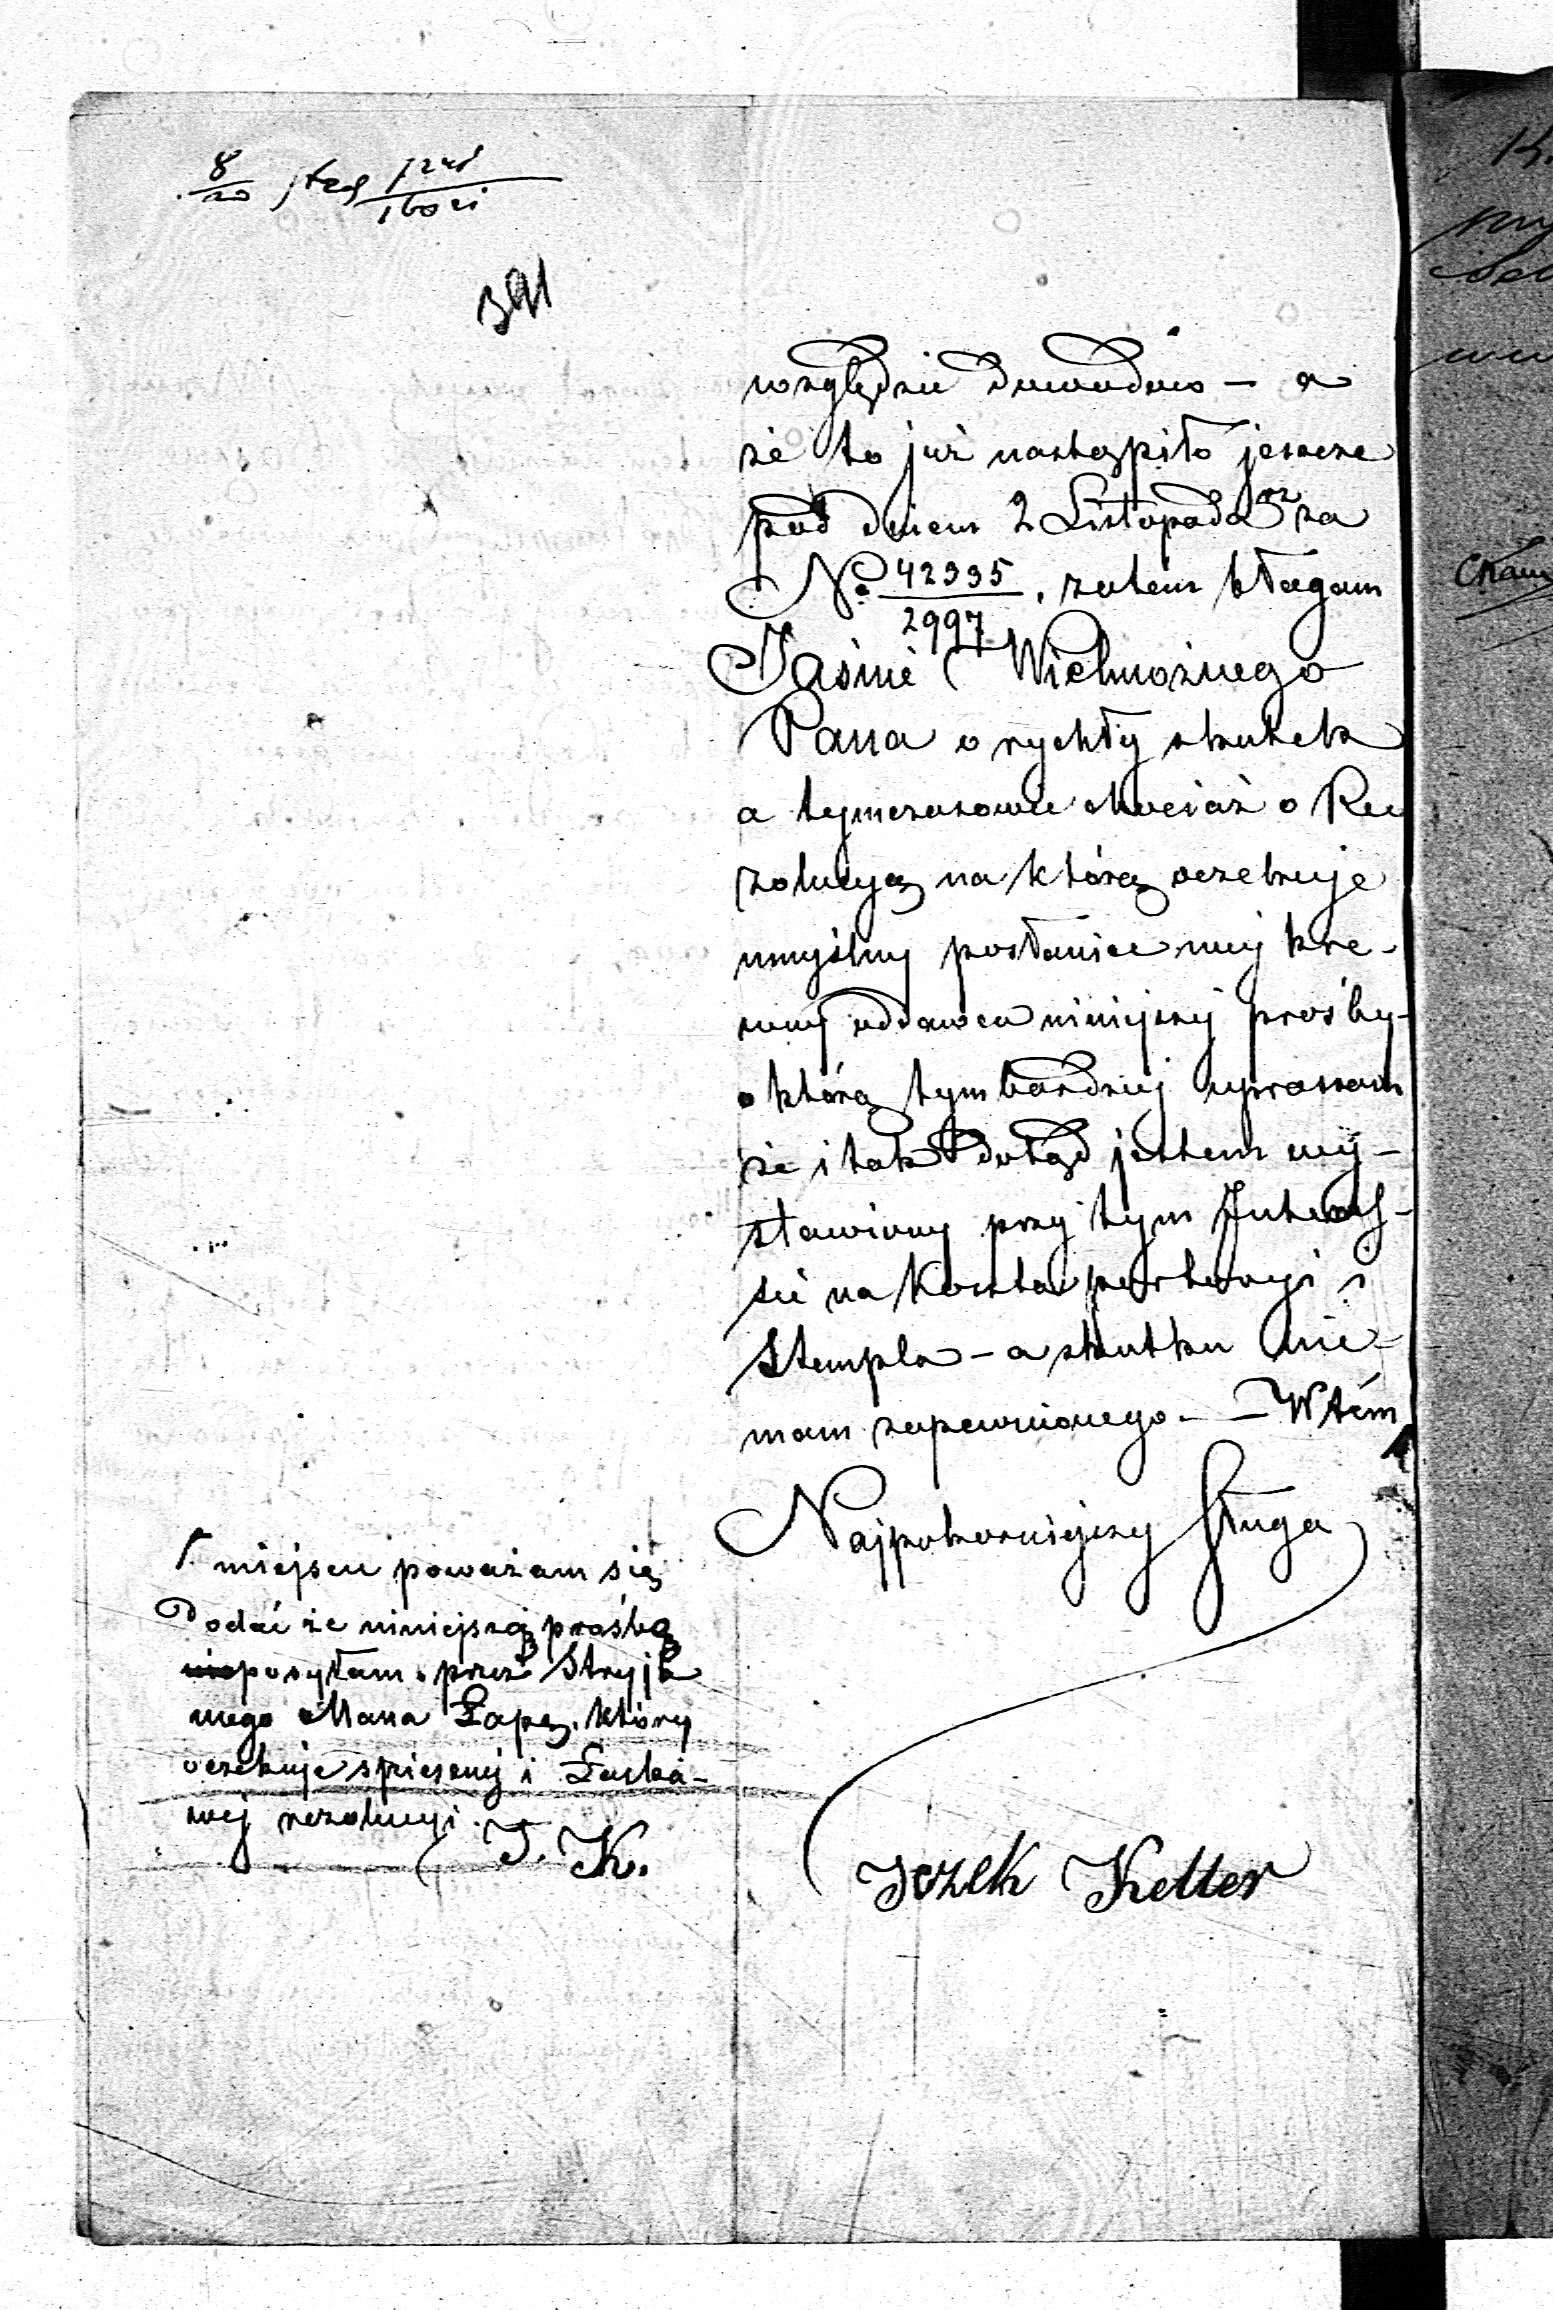 8/20
391
względzie dowodow – a
że to już nastąpiło jeszcze
pod dniem 2 Listopada za
No 42995/2997. zatem błagam
Jaśnie Wielmożnego
Pana o rychły skutek
a tymczasowie chociaż o Re
zolucyą na którą oczekuje
umyślny posłaniec mój kre-
wny oddawca niniejszej prośby-
o którą tym bardziej upraszam
że i tak dotąd jestem wy-
stawiony przy tym Interes-
sie na koszta portoryi i
Stempla – a skutku nie-
mam zapewnionego. – W tém
Najpokorniejszy Sługa
Iczek Keller
miejscu poważam się
Dodać że niniejszą prośbę
posyłam przez Stryja
mego Mana Łapę, który
oczekuje spieszny i Łaska-
wej rezolucyi.
I. K.